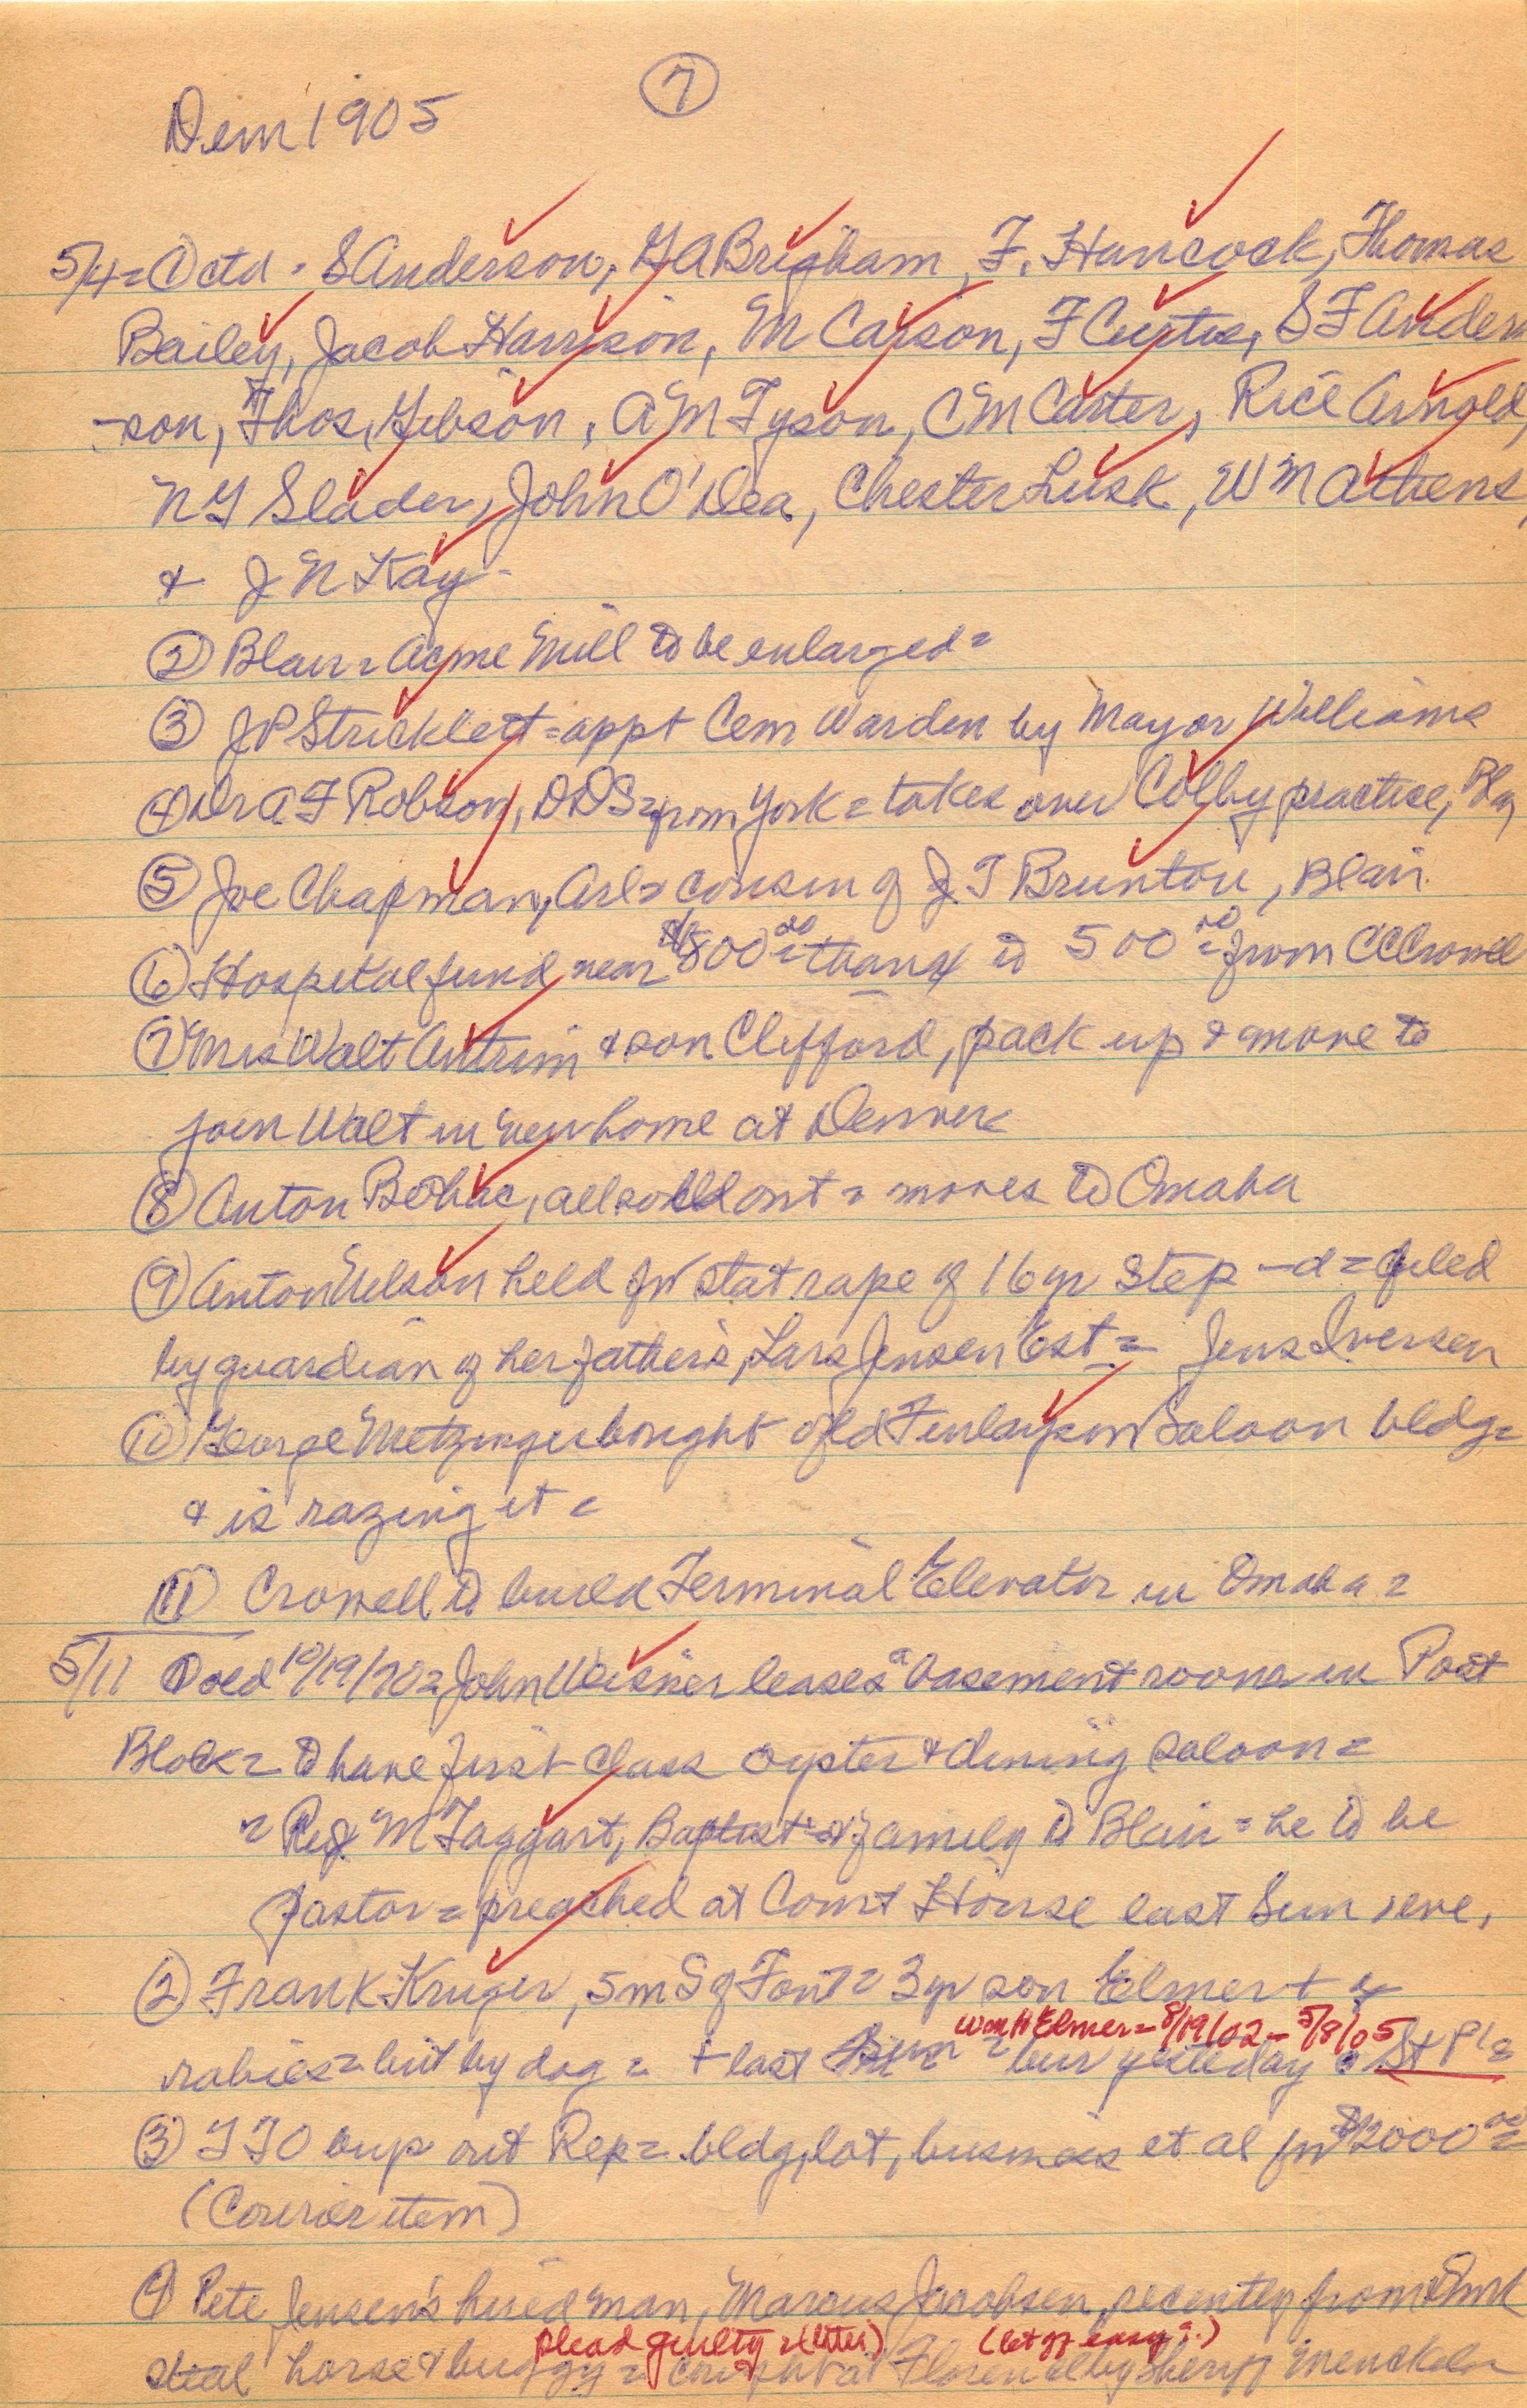 7
Dem 1905
5/4 = ① ctd - S Anderson, G A Brigham, F. Hancock, Thomas
Bailey, Jacob Harrison, M Carson, F Curtis, S F Ander
-son, Thos, Gibson, A M Tyson, C M Carter, Rice Arnold,
N G Slader, John O'Dea, Chester Lusk, W M Athens,
+ J N Kay -
② Blair = Acme Mill to be enlarged =
③ J P Stricklett = appt Cem Warden by Mayor Williams
④ Dr A. F Robson, DDS = from York = takes over Colby practice, Bla,
⑤ Joe Chapman, Arl = cousin of J T Brunton, Blair.
⑥ Hospital fund near $800⁰⁰ = thanx to 500⁰⁰ = from CC Crowell
⑦ Mrs Walt Antrim + son Clifford, pack up + move to
join Walt in new home at Denver
⑧ Anton Bohac, all sold out = moves to Omaha
⑨ Anton Nelson held for stat rape of 16 yr step -d = filed
by guardian of her father's, Lars Jensen Est = Jens Iversen
⑩ George Metzinger bought old Finlayson Saloon bldg =
+ is razing it =
⑪ Crowell to build Terminal Elevator in Omaha =
5/11 ① old 10/19/70 = John Weisner leases a basement room in Post
Block = to have first class oyster + dining saloon =
= Rev M Taggart, Baptist + family to Blair = he to be
pastor = preached at Court House last Sun eve,
② Frank Kruger, 5m S of Font = 3 yr son Elmer + of
Wm H Elmer = 8/19/02 - 5/8/05
rabies = bit by dog = + last = bur yesterday St Pls
③ T T O buys out Rep = bldg, lot, business et al for $2000⁰⁰ =
(Courier item)
④ Pete Jensen's hired man, Marcus Jacobsen, recently from Dmk
plead guilty (later) (let off easy)
steal horse + buggy = caught at Florence by Sheriff Menckele